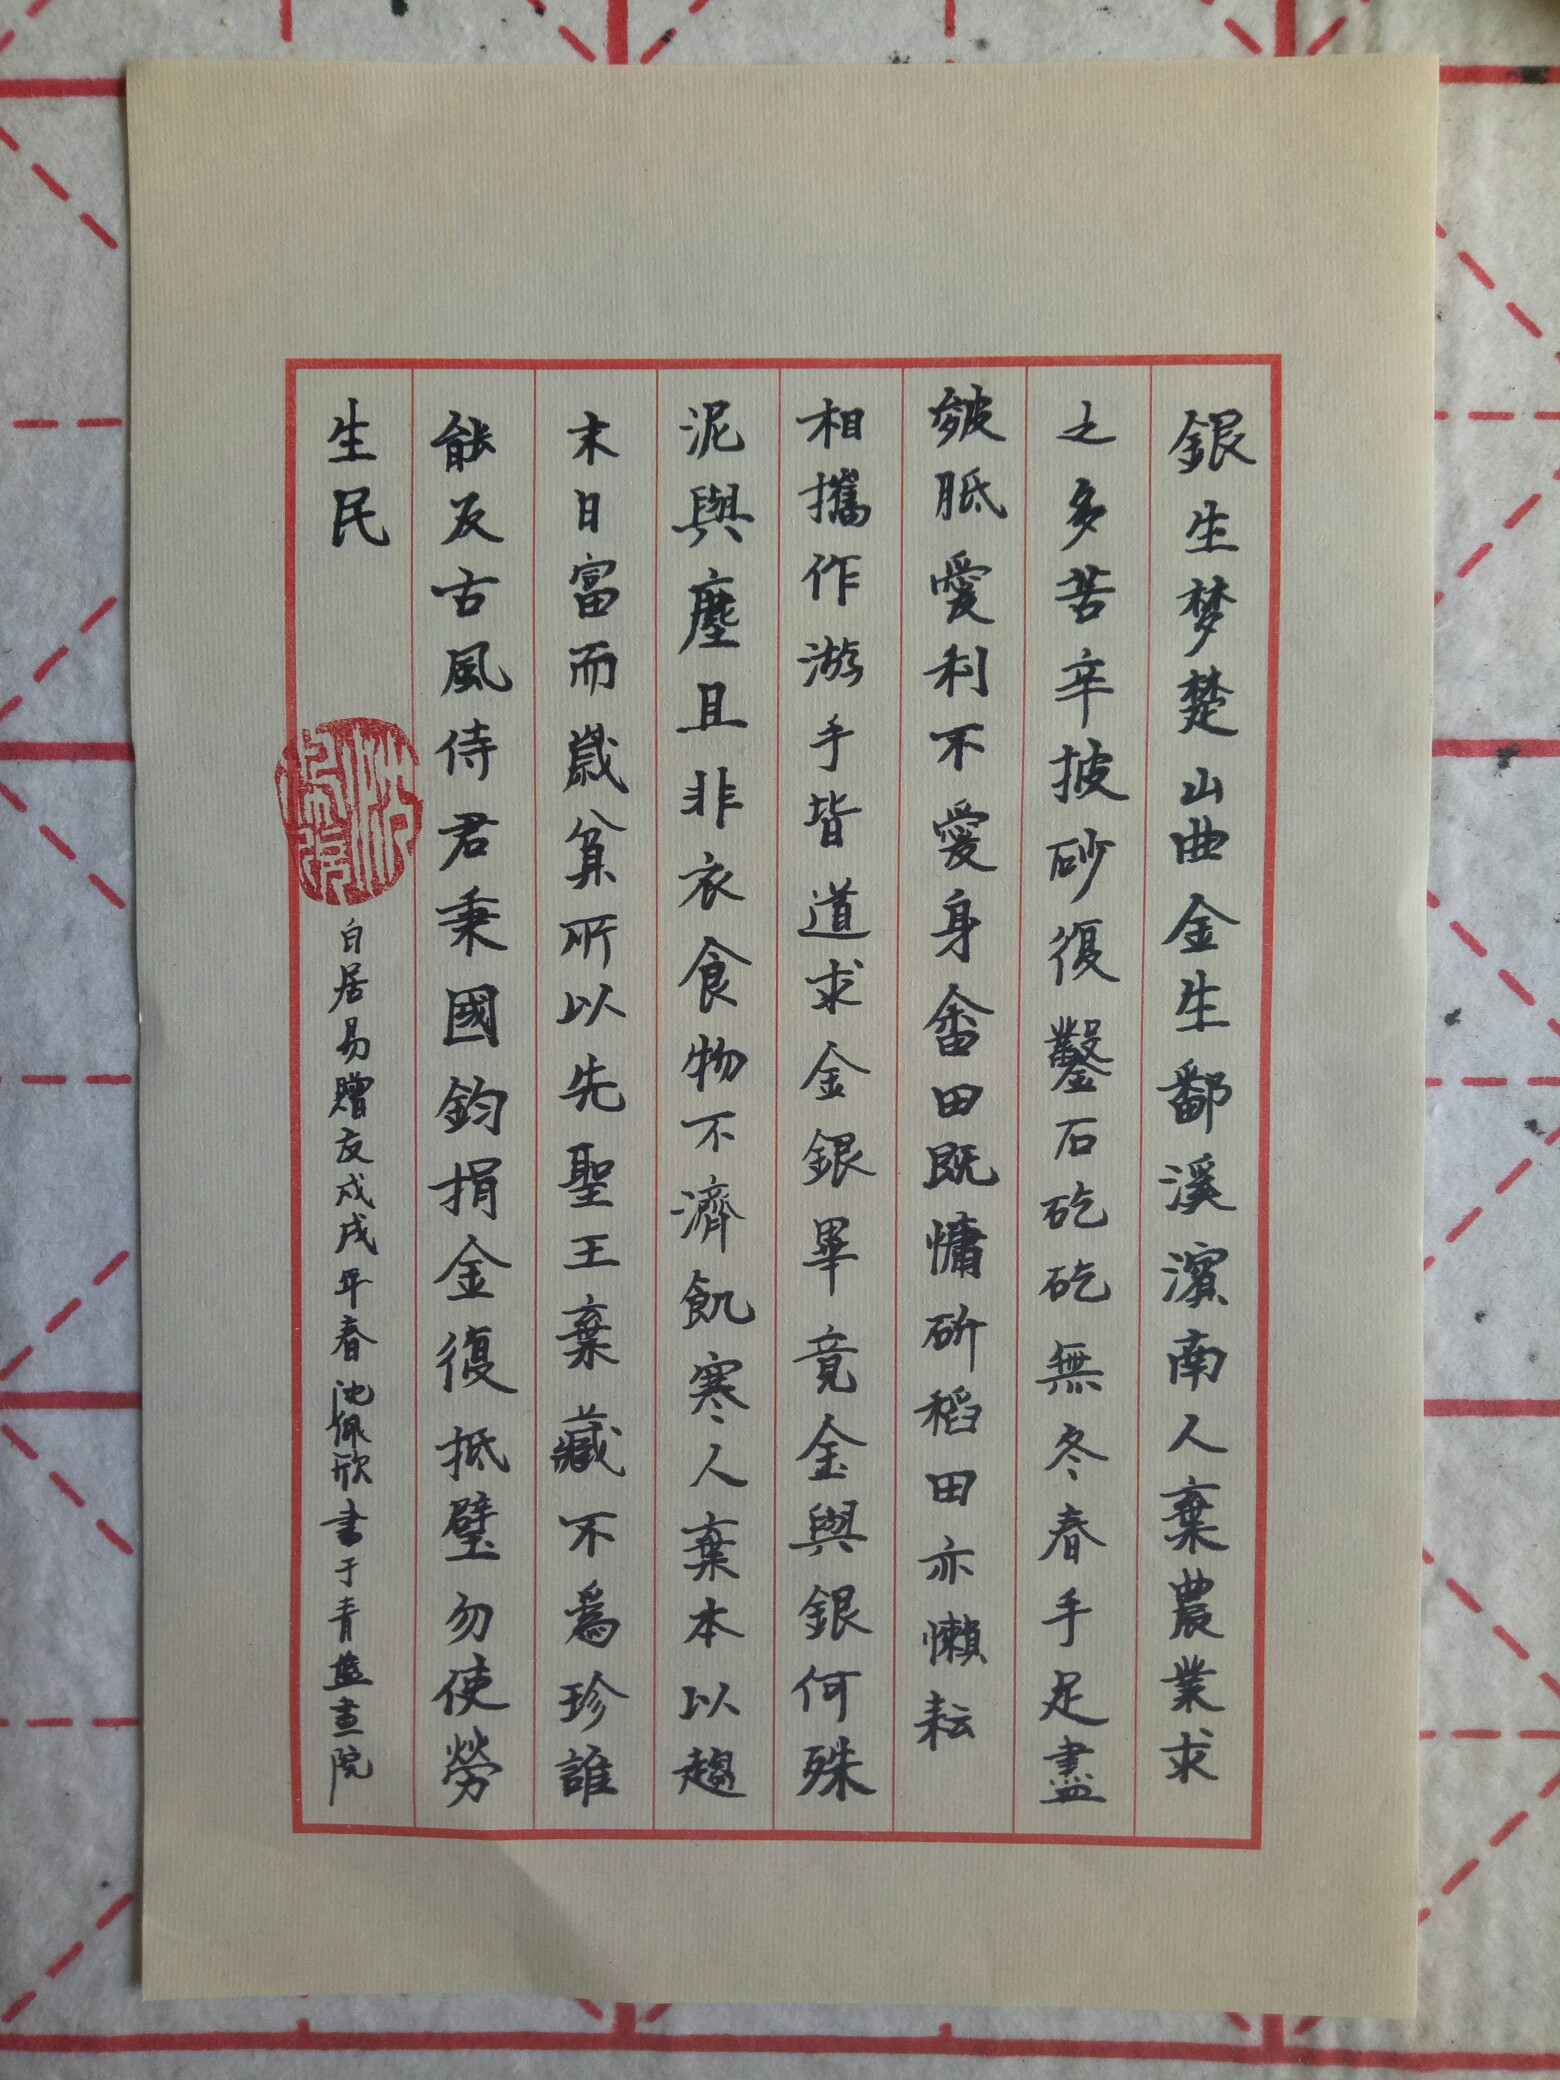 銀生梦楚山曲金生鄱溪濱南人棄農業求
之多苦辛披砂復鑿石矻矻無冬春手足盡
皴胝愛利不愛身畲田既慵斫稻田亦懶耘
相攜作游手皆道求金銀畢竟金與銀何殊
泥與塵且非衣食物不濟飢寒人棄本以趨
末日富而歲貧所以先聖王棄藏不爲珍誰
能反古風侍君秉國鈞捐金復抵璧勿使勞
生民
白居易贈友戊戌年春沈佩欣書于青藍畫院